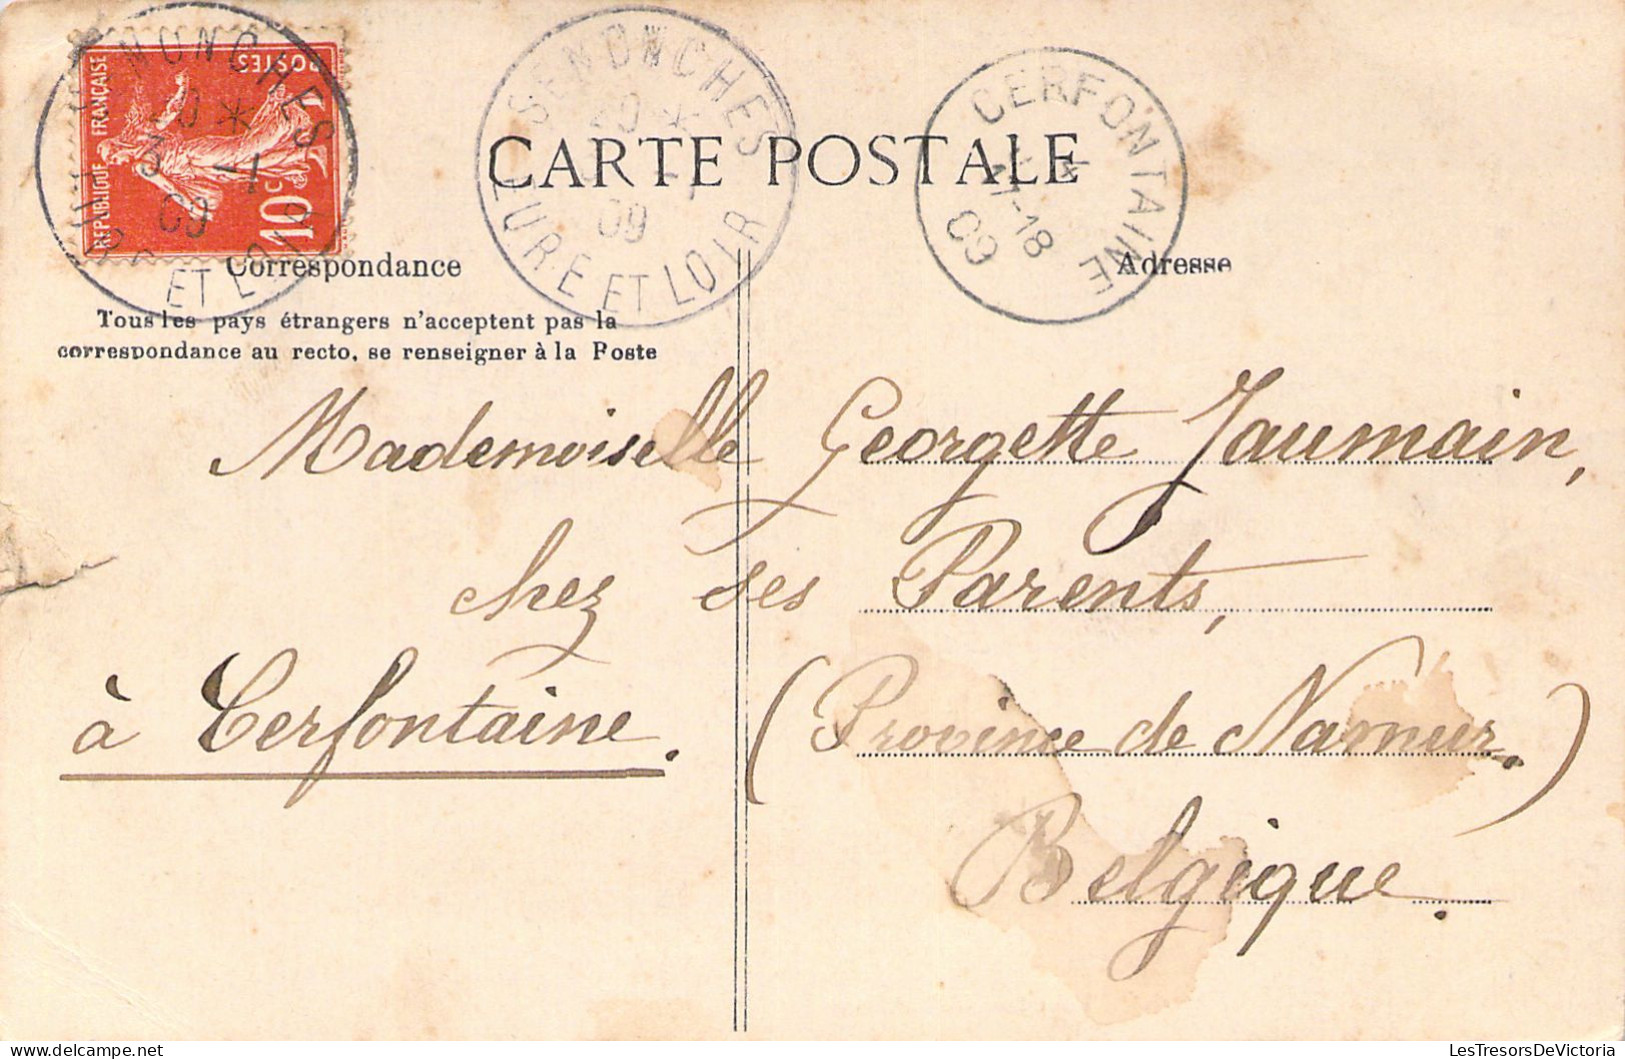 REPUBLIQUE FRANÇAISE
POSTES
10c
SENONCHES
20 *
3 -1
09
EURE ET LOIR
SENONCHES
20 *
-1
09
EURE ET LOIR
CERFONTAINE
17-18
09
CARTE POSTALE
Correspondance
Adresse
Tous les pays étrangers n'acceptent pas la
correspondance au recto, se renseigner à la Poste
Mademoiselle Georgette Jaumain,
chez ses Parents,
à Cerfontaine. (Province de Namur.)
Belgique.
LesTresorsDeVictoria